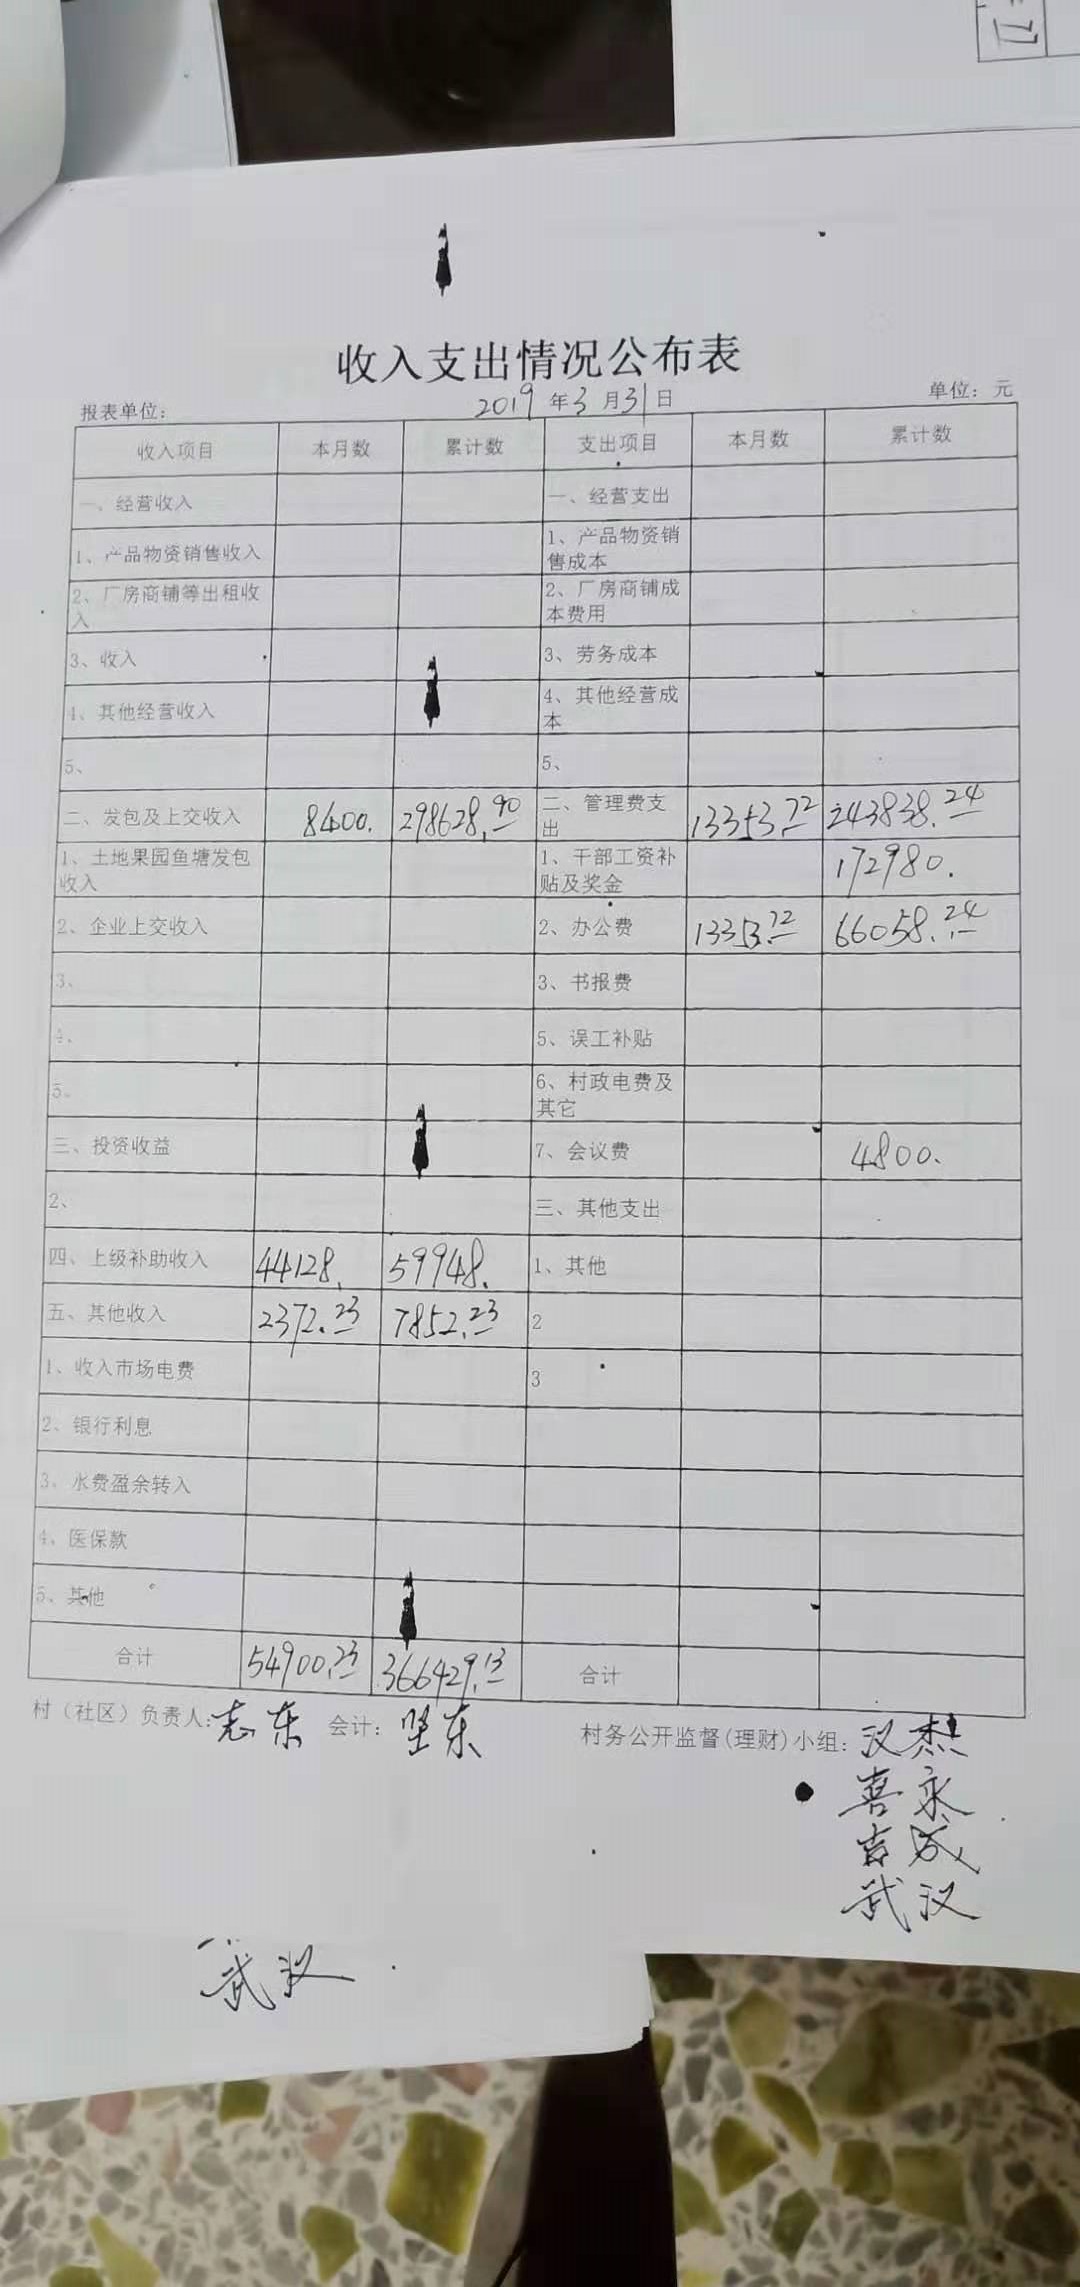 收入支出情况公布表
报表单位: 2019年3月31日 单位: 元
收入项目 本月数 累计数 支出项目 本月数 累计数
一、经营收入 一、经营支出
1、产品物资销售收入 1、产品物资销售成本
2、厂房商铺等出租收入 2、厂房商铺成本费用
3、收入 3、劳务成本
4、其他经营收入 4、其他经营成本
5、 5、
二、发包及上交收入 8400. 298628.90 二、管理费支出 13353.72 243838.24
1、土地果园鱼塘发包收入 1、干部工资补贴及奖金 172980.
2、企业上交收入 2、办公费 13353.72 66058.24
3、 3、书报费
4、 5、误工补贴
5、 6、村政电费及其它
三、投资收益 7、会议费 4800.
2、 三、其他支出
四、上级补助收入 44128. 59948. 1、其他
五、其他收入 2372.23 7852.23 2
1、收入市场电费 3
2、银行利息
3、水费盈余转入
4、医保款
5、其他
合计 54900.23 366429.13 合计
村（社区）负责人: 志东 会计: 坚东 村务公开监督(理财)小组: 汉杰
喜永
吉成
武汉
武汉